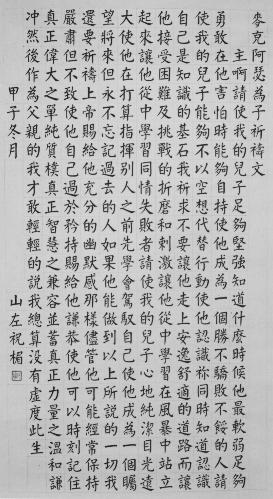 麥克阿瑟為子祈禱文
主啊請使我的兒子足夠堅強知道什麼時候他最軟弱足夠
勇敢在他害怕時能夠自持使他成為一個勝不驕敗不餒的人請
使我的兒子能夠不以空想代替行動使他認識祢同時知道認識
自己是知識的基石我祈求不要讓他走上安逸舒適的道路而讓
他接受困難及挑戰的折磨和刺激讓他從中學習在風暴中站立
起來讓他從中學習同情失敗者請使我的兒子心地純潔目光遠
大使他在打算指揮別人之前先學會駕馭自己使他成為一個矚
望將來但永不忘記過去的人如果他能做到以上所說的一切我
還要祈禱上帝賜給他充分的幽默感那樣儘管他可能經常保持
嚴肅但不致使他自己過於矜持賜給他謙恭使他可以時刻記住
真正偉大之單純質樸真正智慧之兼容並蓄真正力量之溫和謙
冲然後作為父親的我才敢輕輕的說我總算没有虛度此生
甲子冬月
山左祝楣